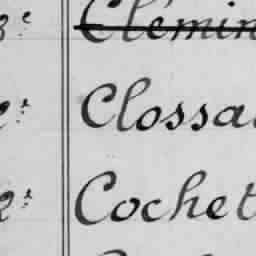 Clémin
Clossa
Cochet